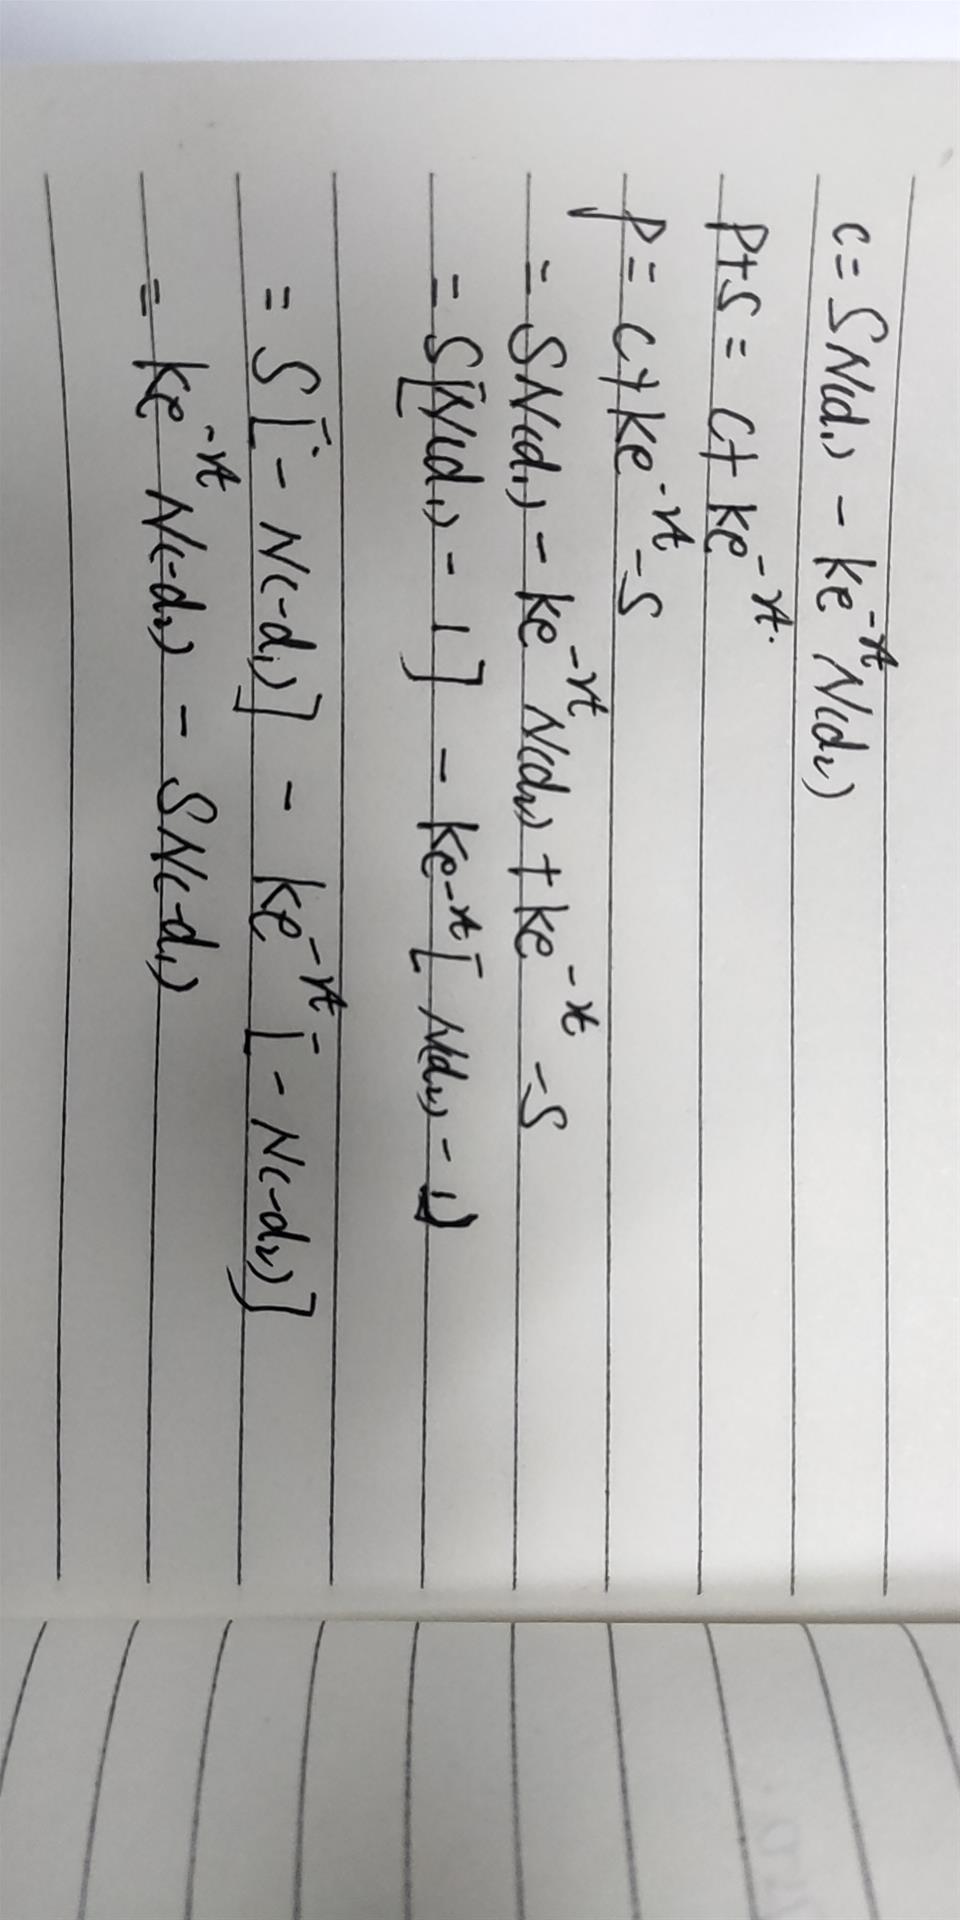 c = SN(d₁) - ke^-rt N(d₂)
P+S = C+ke^-rt.
P = C+ke^-rt -S
= SN(d₁) - ke^-rt N(d₂) + ke^-rt -S
= S[N(d₁) - 1] - ke^-rt[N(d₂) - 1]
= S[-N(-d₁)] - ke^-rt[-N(-d₂)]
= ke^-rt N(-d₂) - SN(-d₁)